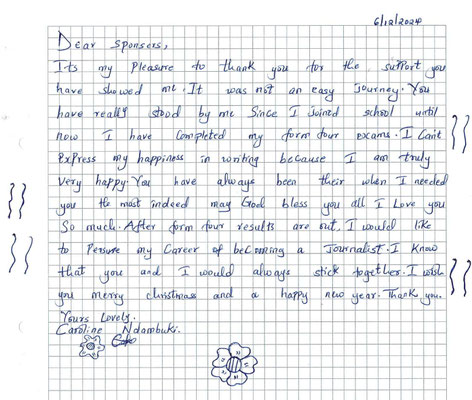 6/12/2024
Dear Sponsers,
Its my pleasure to thank you for the support you
have showed me. It was not an easy journey. You
have really stood by me Since I joined school until
now I have completed my form four exams. I Can't
Express my happiness in writing because I am truly
Very happy. You have always been their when I needed
you the most indeed may God bless you all I Love you
So much. After form four results are out, I would like
to Persure my Career of becoming a Journalist. I Know
that you and I would always stick together. I wish
you merry christmass and a happy new year. Thank you.
Yours Lovely.
Caroline Ndambuki.